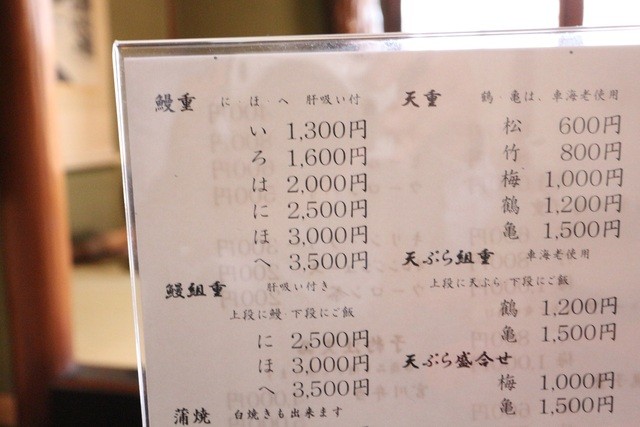 鰻重 に ほ へ 肝吸い付
い 1,300円
ろ 1,600円
は 2,000円
に 2,500円
ほ 3,000円
へ 3,500円
鰻組重 肝吸い付き
上段に鰻 下段にご飯
に 2,500円
ほ 3,000円
へ 3,500円
蒲焼 白焼きも出来ます
天重 鶴・亀は、車海老使用
松 600円
竹 800円
梅 1,000円
鶴 1,200円
亀 1,500円
天ぷら組重 車海老使用
上段に天ぷら 下段にご飯
鶴 1,200円
亀 1,500円
天ぷら盛合せ
梅 1,000円
亀 1,500円